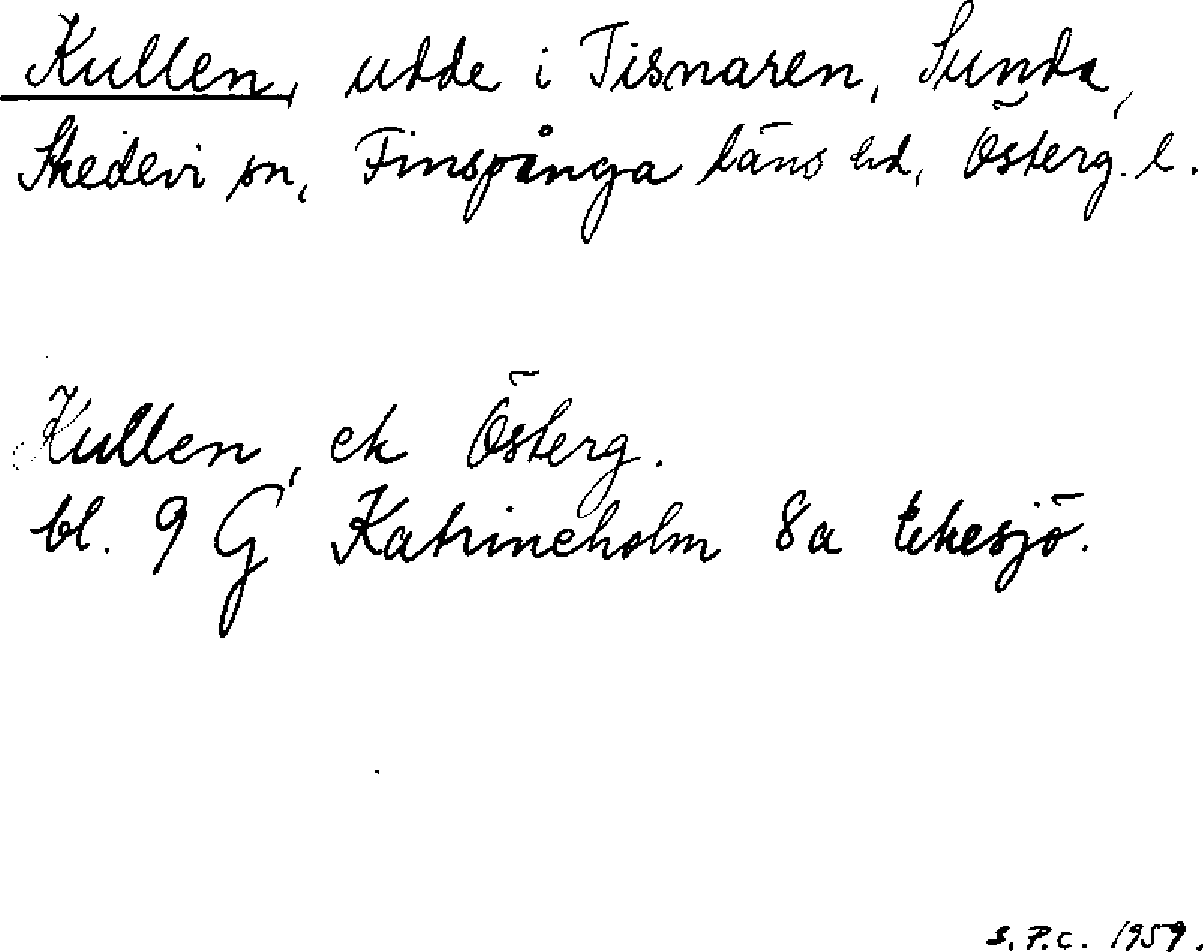 Kullen, udde i Tisnaren, Sunda,
Skedevi sn, Finspånga läns hd, Österg. l.
Kullen, ek Österg.
bl. 9 G Katrineholm 8a Ekesjö.
S.P.C. 1959.